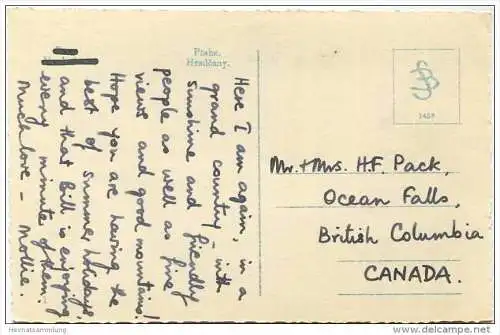 Praha.
Hradčany.
Here I am again, in a
grand country - with
sunshine and friendly
people as well as fine
views and good mountains!
Hope you are having the
best of summer holidays,
and that Bill is enjoying
every minute of them.
Much love - Mollie.
Mr. + Mrs. H.F. Pack,
Ocean Falls,
British Columbia
CANADA.
Heimatsammlung
www.delcampe.net